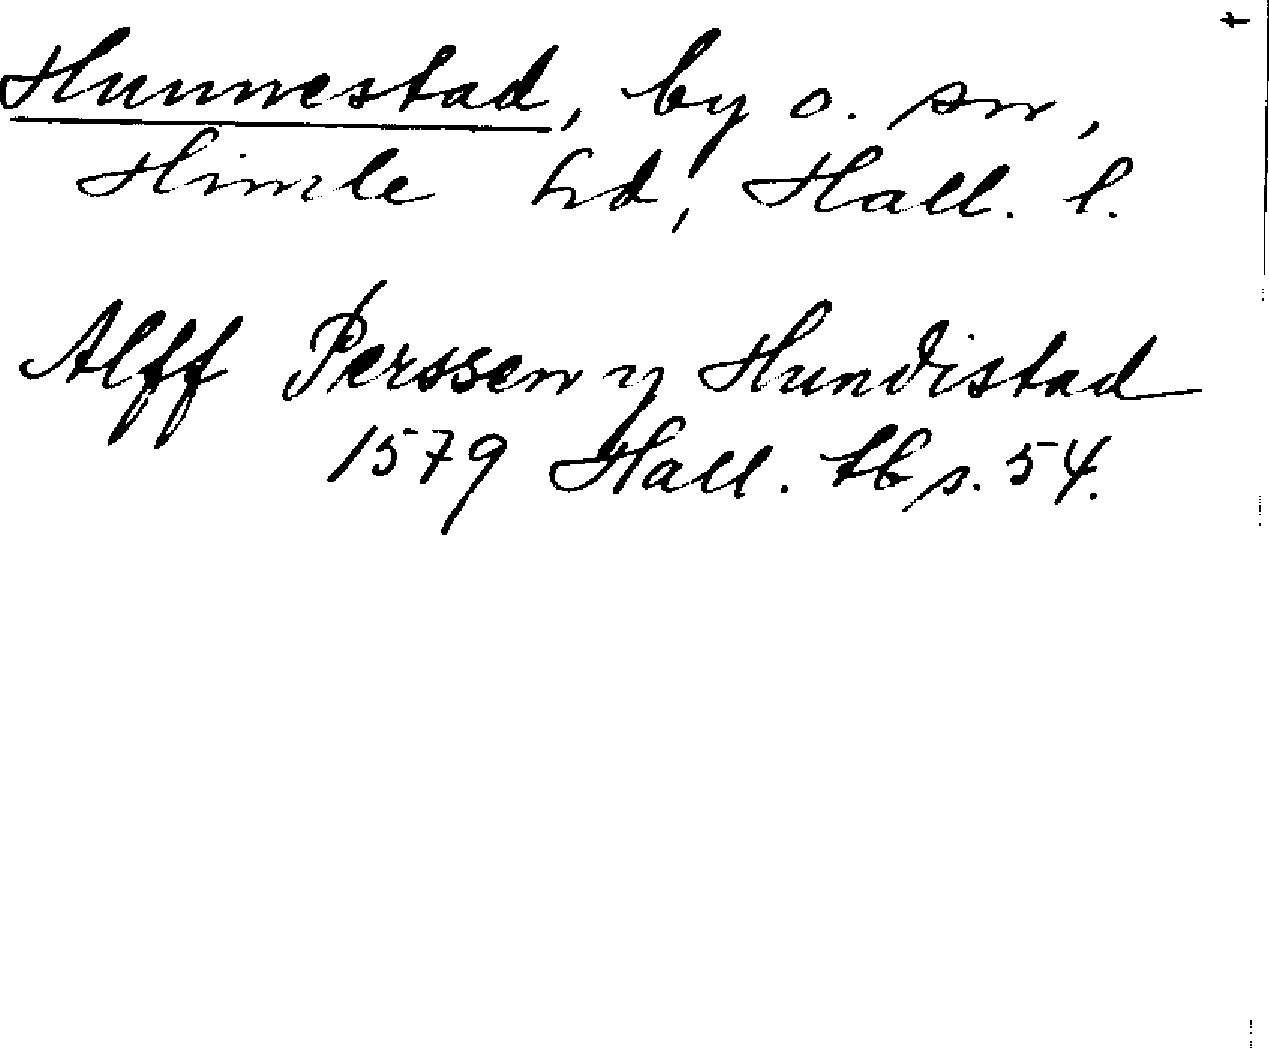 Hunnestad, by o. sn,
Himle hd, Hall. l.
Alff Perssen y Hundistad
1579 Hall. tb s. 54.